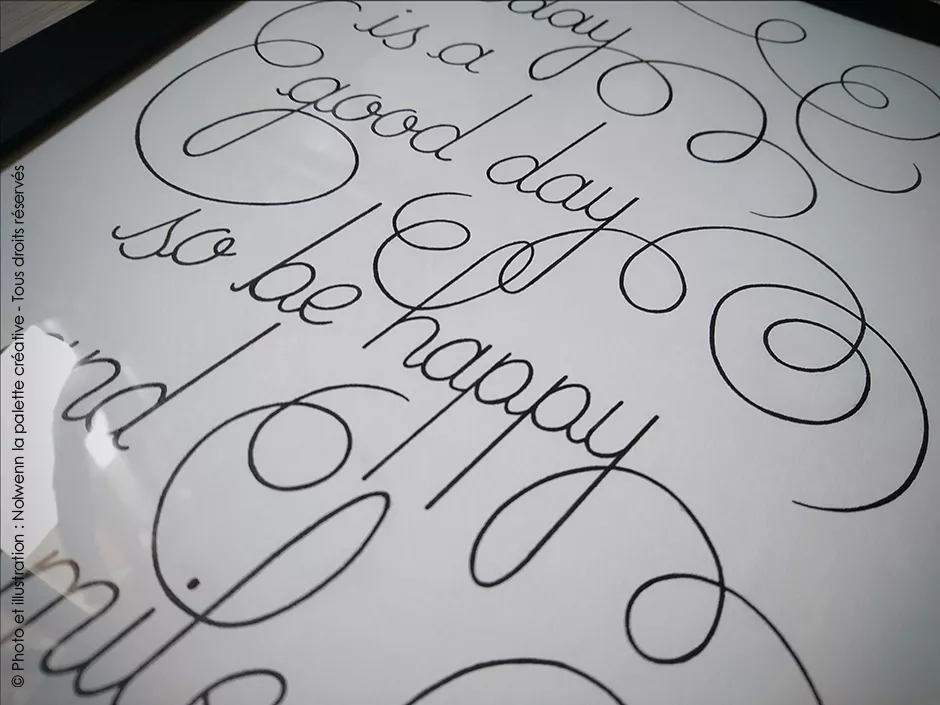 day
is a
good day
so be happy
and
© Photo et illustration : Nolwenn la palette créative - Tous droits réservés